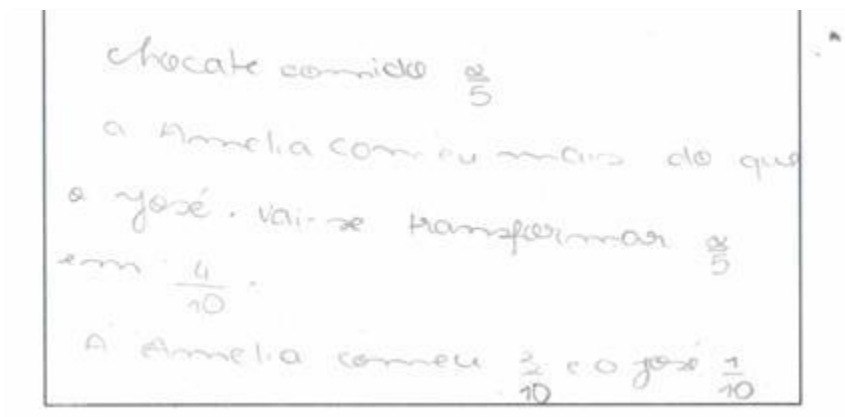 chocate comido 2/5
a Amelia comeu mais do que
o José. vai-se transformar 2/5
em 4/10.
A Amelia comeu /10 e o José 1/10